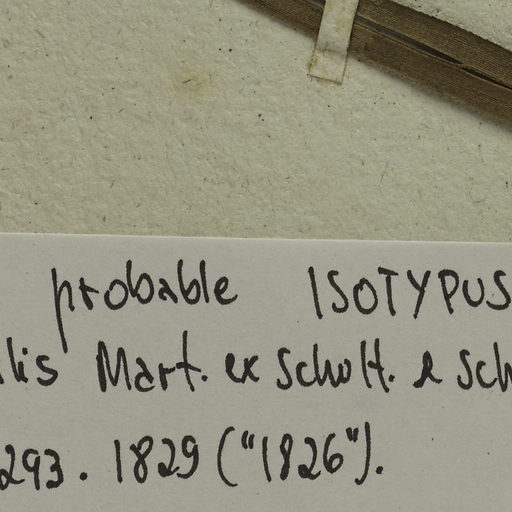 probable ISOTYPUS
lis Mart. ex Scholt. & Sch
293. 1829 ("1826").